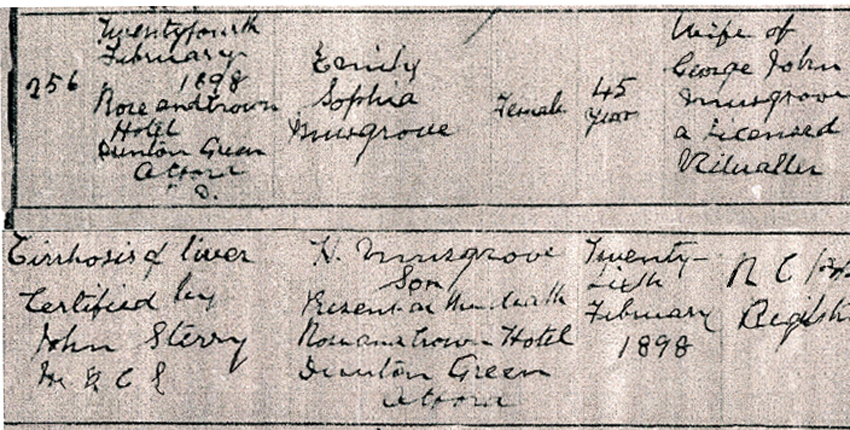 256
Twentyfourth
February
1898
Rose and Crown
Hotel
Dunton Green
Otford
U. D.
Emily
Sophia
Musgrove
Female
45
Years
Wife of
George John
Musgrove
a Licensed
Vitualler
Cirrhosis of liver
Certified by
John Sterry
M R C S
H. Musgrove
Son
Present at the death
Rose and Crown Hotel
Dunton Green
Otford
Twenty-
sixth
February
1898
R C
Registr